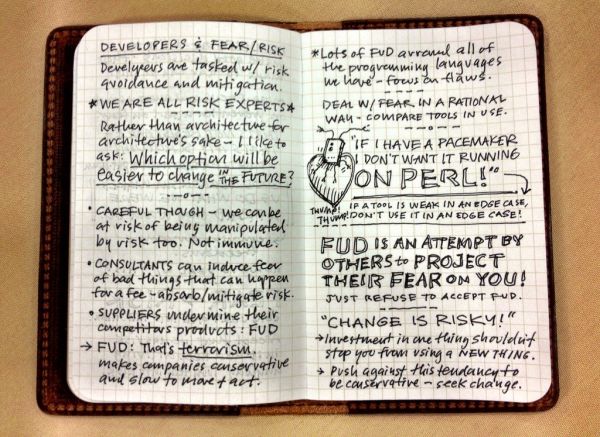 DEVELOPERS & FEAR/RISK
Developers are tasked w/ risk
avoidance and mitigation.
*WE ARE ALL RISK EXPERTS*
Rather than architecture for
architecture's sake – I like to
ask: Which option will be
easier to change IN THE FUTURE?
• CAREFUL THOUGH – we can be
at risk of being manipulated
by risk too. Not immune.
• CONSULTANTS can induce fear
of bad things that can happen
for a fee – absorb/mitigate risk.
• SUPPLIERS undermine their
competitors products: FUD
→ FUD: That's terrorism.
makes companies conservative
and slow to move + act.
*LOTS OF FUD around all of
the programming languages
we have – focus on flaws.
DEAL W/ FEAR IN A RATIONAL
WAY – COMPARE TOOLS IN USE.
"IF I HAVE A PACEMAKER
I DON'T WANT IT RUNNING
ON PERL!"
THUMP!
THUMP!
IF A TOOL IS WEAK IN AN EDGE CASE,
DON'T USE IT IN AN EDGE CASE!
FUD IS AN ATTEMPT BY
OTHERS to PROJECT
THEIR FEAR ON YOU!
JUST REFUSE TO ACCEPT FUD.
"CHANGE IS RISKY!"
→ Investment in one thing shouldn't
stop you from using a NEW THING.
→ Push against this tendancy to
be conservative – seek change.